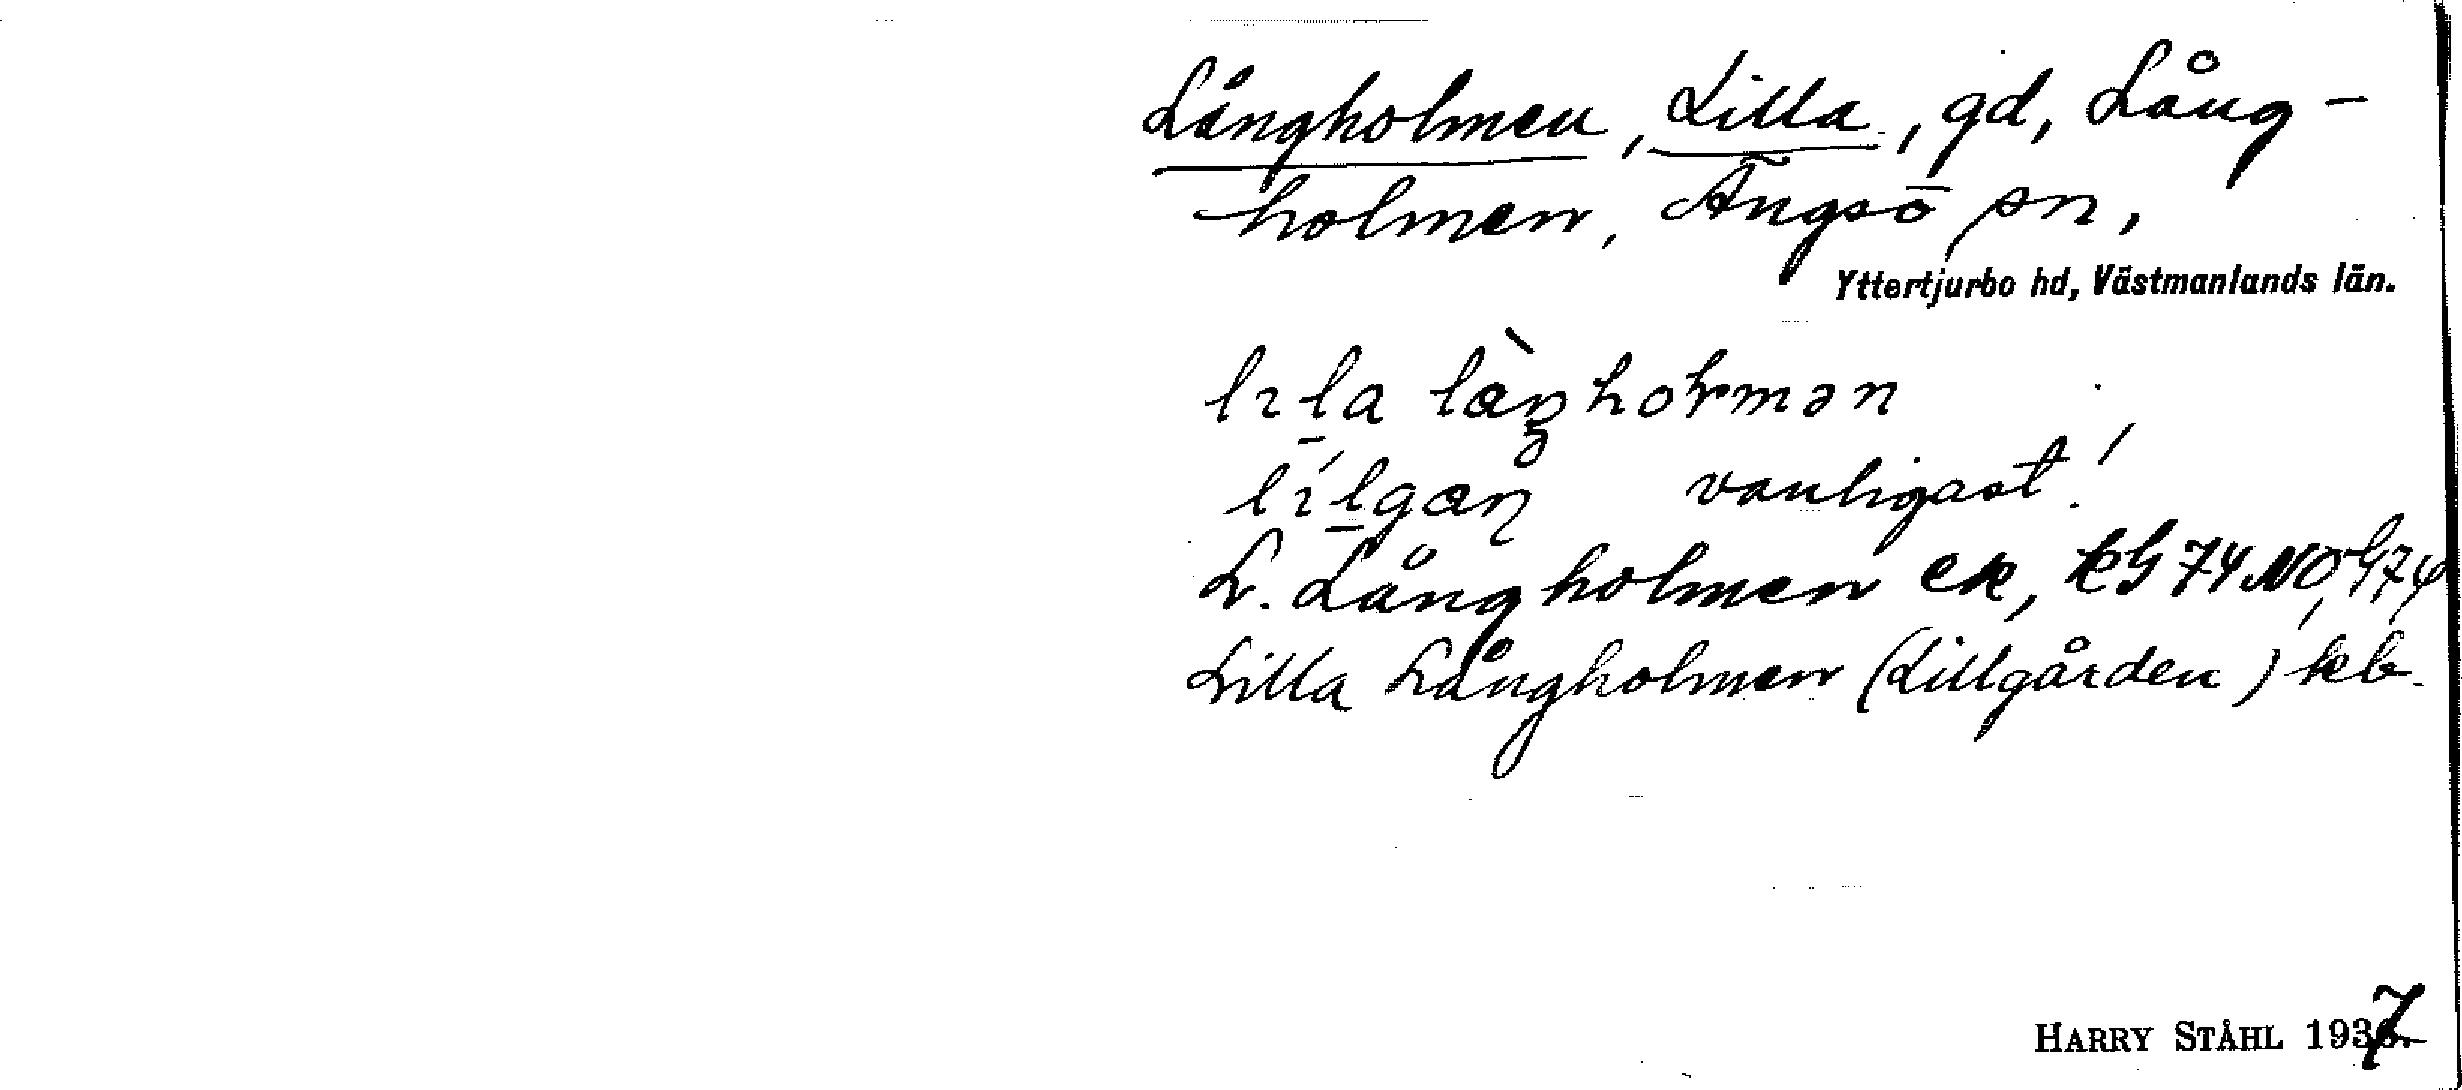 Långholmen, Lilla, gd, Lång-
holmen, Ängsö sn,
Yttertjurbo hd, Västmanlands län.
vanligast!
L. Långholmen ek, kG 74 NO, G74
Lilla Långholmen (Lillgården) kb.
HARRY STÅHL 1937